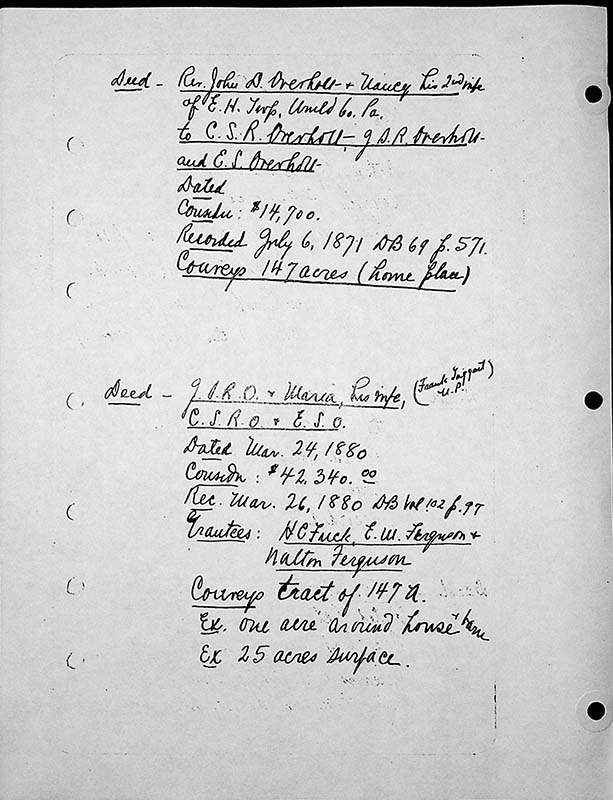 Deed - Rev. John D. Overholt + Nancy his 2nd wife
of E. H. Twp, Wmld Co. Pa.
to C. S. R. Overholt, J D. R. Overholt
and E. S. Overholt
Dated
Considn: $14,700.
Recorded July 6, 1871 DB 69 p. 571.
Conveys 147 acres (home place)
Deed - J. D. R. O. + Maria, his wife, (Frank Taggart N.P.)
C. S. R. O. + E. S. O.
Dated Mar. 24, 1880
Considn: $42,340.00
Rec. Mar. 26, 1880 DB Vol 102 p. 97
Grantees: H C Frick, E. M. Ferguson +
Walton Ferguson
Conveys tract of 147 A.
Ex. one acre around house + barn
Ex 25 acres surface.